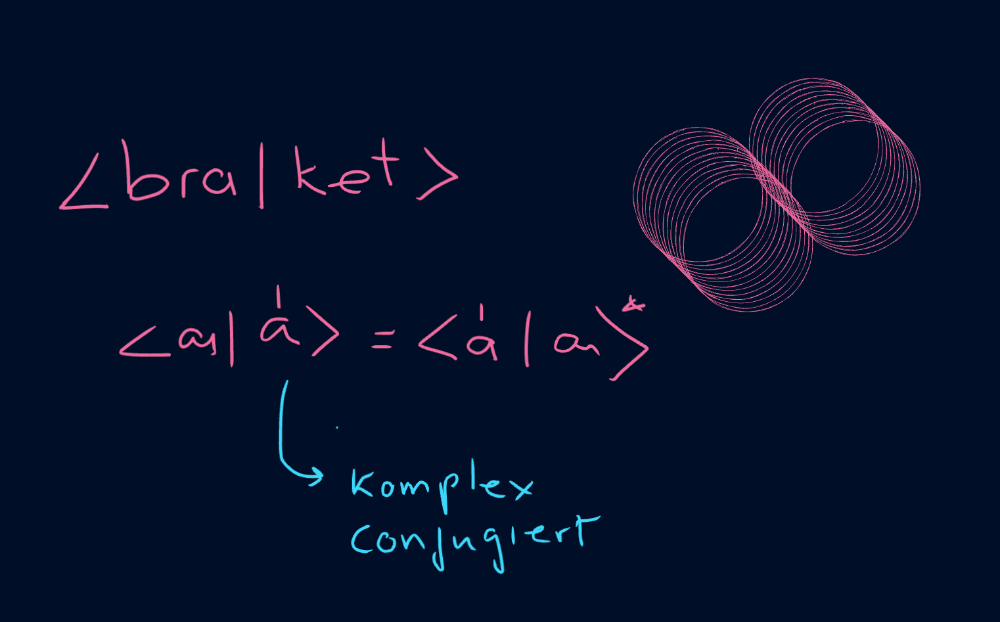 <bra|ket>
<a|á> = <á|a>*
Komplex
conjugiert